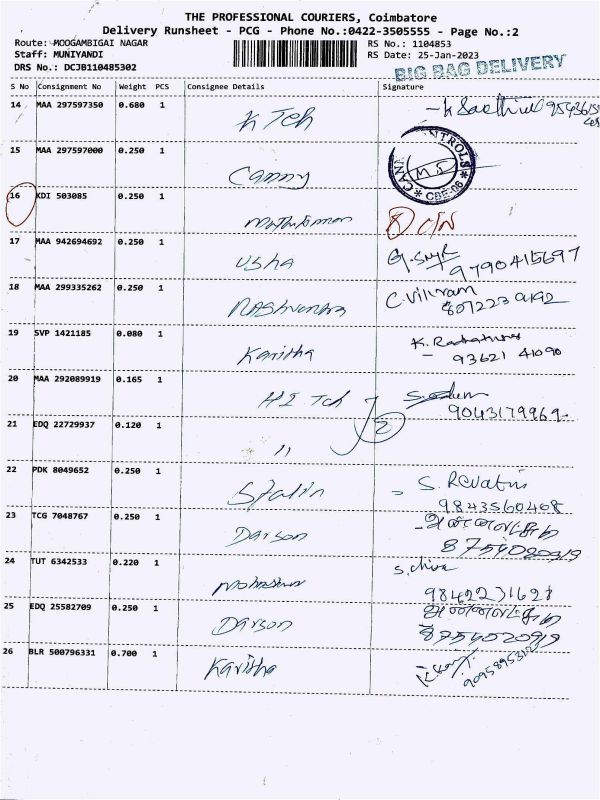 THE PROFESSIONAL COURIERS, Coimbatore
Delivery Runsheet - PCG - Phone No.:0422-3505555 - Page No.:2
Route: MOOGAMBIGAI NAGAR
Staff: MUNIYANDI
DRS No.: DCJB110485302
RS No.: 1104853
RS Date: 25-Jan-2023
BIG BAG DELIVERY
S No Consignment No Weight PCS Consignee Details Signature
14 MAA 297597350 0.680 1 K Tch
15 MAA 297597000 0.250 1 Canny
CONTROLS
M S
CBE-06
16 KDI 503085 0.250 1
17 MAA 942694692 0.250 1 Usha
9790415697
18 MAA 299335262 0.250 1 C. Vikram
19 SVP 1421185 0.080 1 Kavitha
93621 41090
20 MAA 292089919 0.165 1 HI Tch
9043179969
2
21 EDQ 22729937 0.120 1 11
22 PDK 8049652 0.250 1 Stalin S. Revathi
9843560468
23 TCG 7048767 0.250 1 Darson
8754020919
24 TUT 6342533 0.220 1 S. Shiva
9842231628
25 EDQ 25582709 0.250 1 Darson
8754020919
26 BLR 500796331 0.700 1 Kavitha